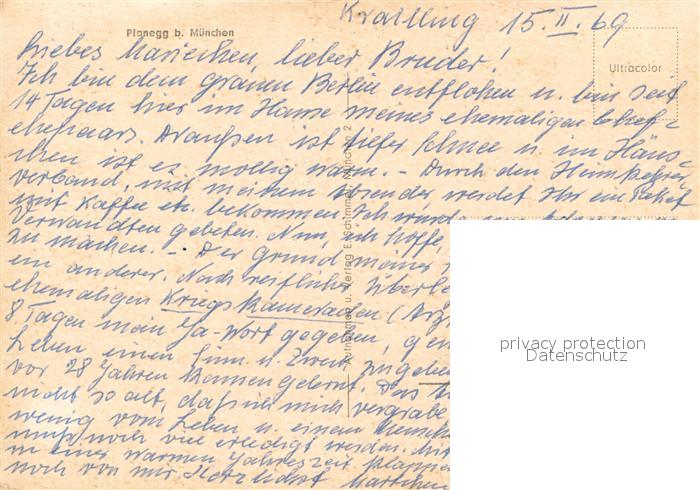 Krailling 15. II. 69
Planegg b. München
Ultracolor
Liebes Mariechen, lieber Bruder!
Ich bin dem grauen Berlin entflohen u. bin seit
14 Tagen hier im Hause meines ehemaligen Chef-
ehepaars. Draußen ist tiefer Schnee u. im Häus-
chen ist es mollig warm. - Durch den
verband, mit meinem werdet Ihr ein Paket
mit Kaffee etc. bekommen. Ich wurde
Verwandten gebeten. Nun, ich hoffe,
zu machen. - Der Grund meines
ein anderer. Nach reiflicher
ehemaligen Kriegskameraden
8 Tagen mein Ja-Wort gegeben,
Leben einen Sinn u. Zweck
vor 28 Jahren kennengelernt. Das
nicht so alt, daß ich mich vergrabe
wenig vom Leben u. einem
muß noch viel erledigt werden.
in einer warmen Jahreszeit
noch von mir Herzlichst
Aufnahmen u. Verlag E. Schimmel, München 2
privacy protection
Datenschutz